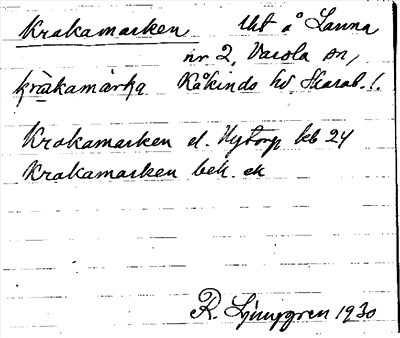 Krakamarken Ut å Lanna
nr 2, Varola sn,
kràkamárka Kåkinds hd Skarab. l.
Krakamarken el. Nytorp kb 24
Krakamarken beb. ek
R. Ljunggren 1930